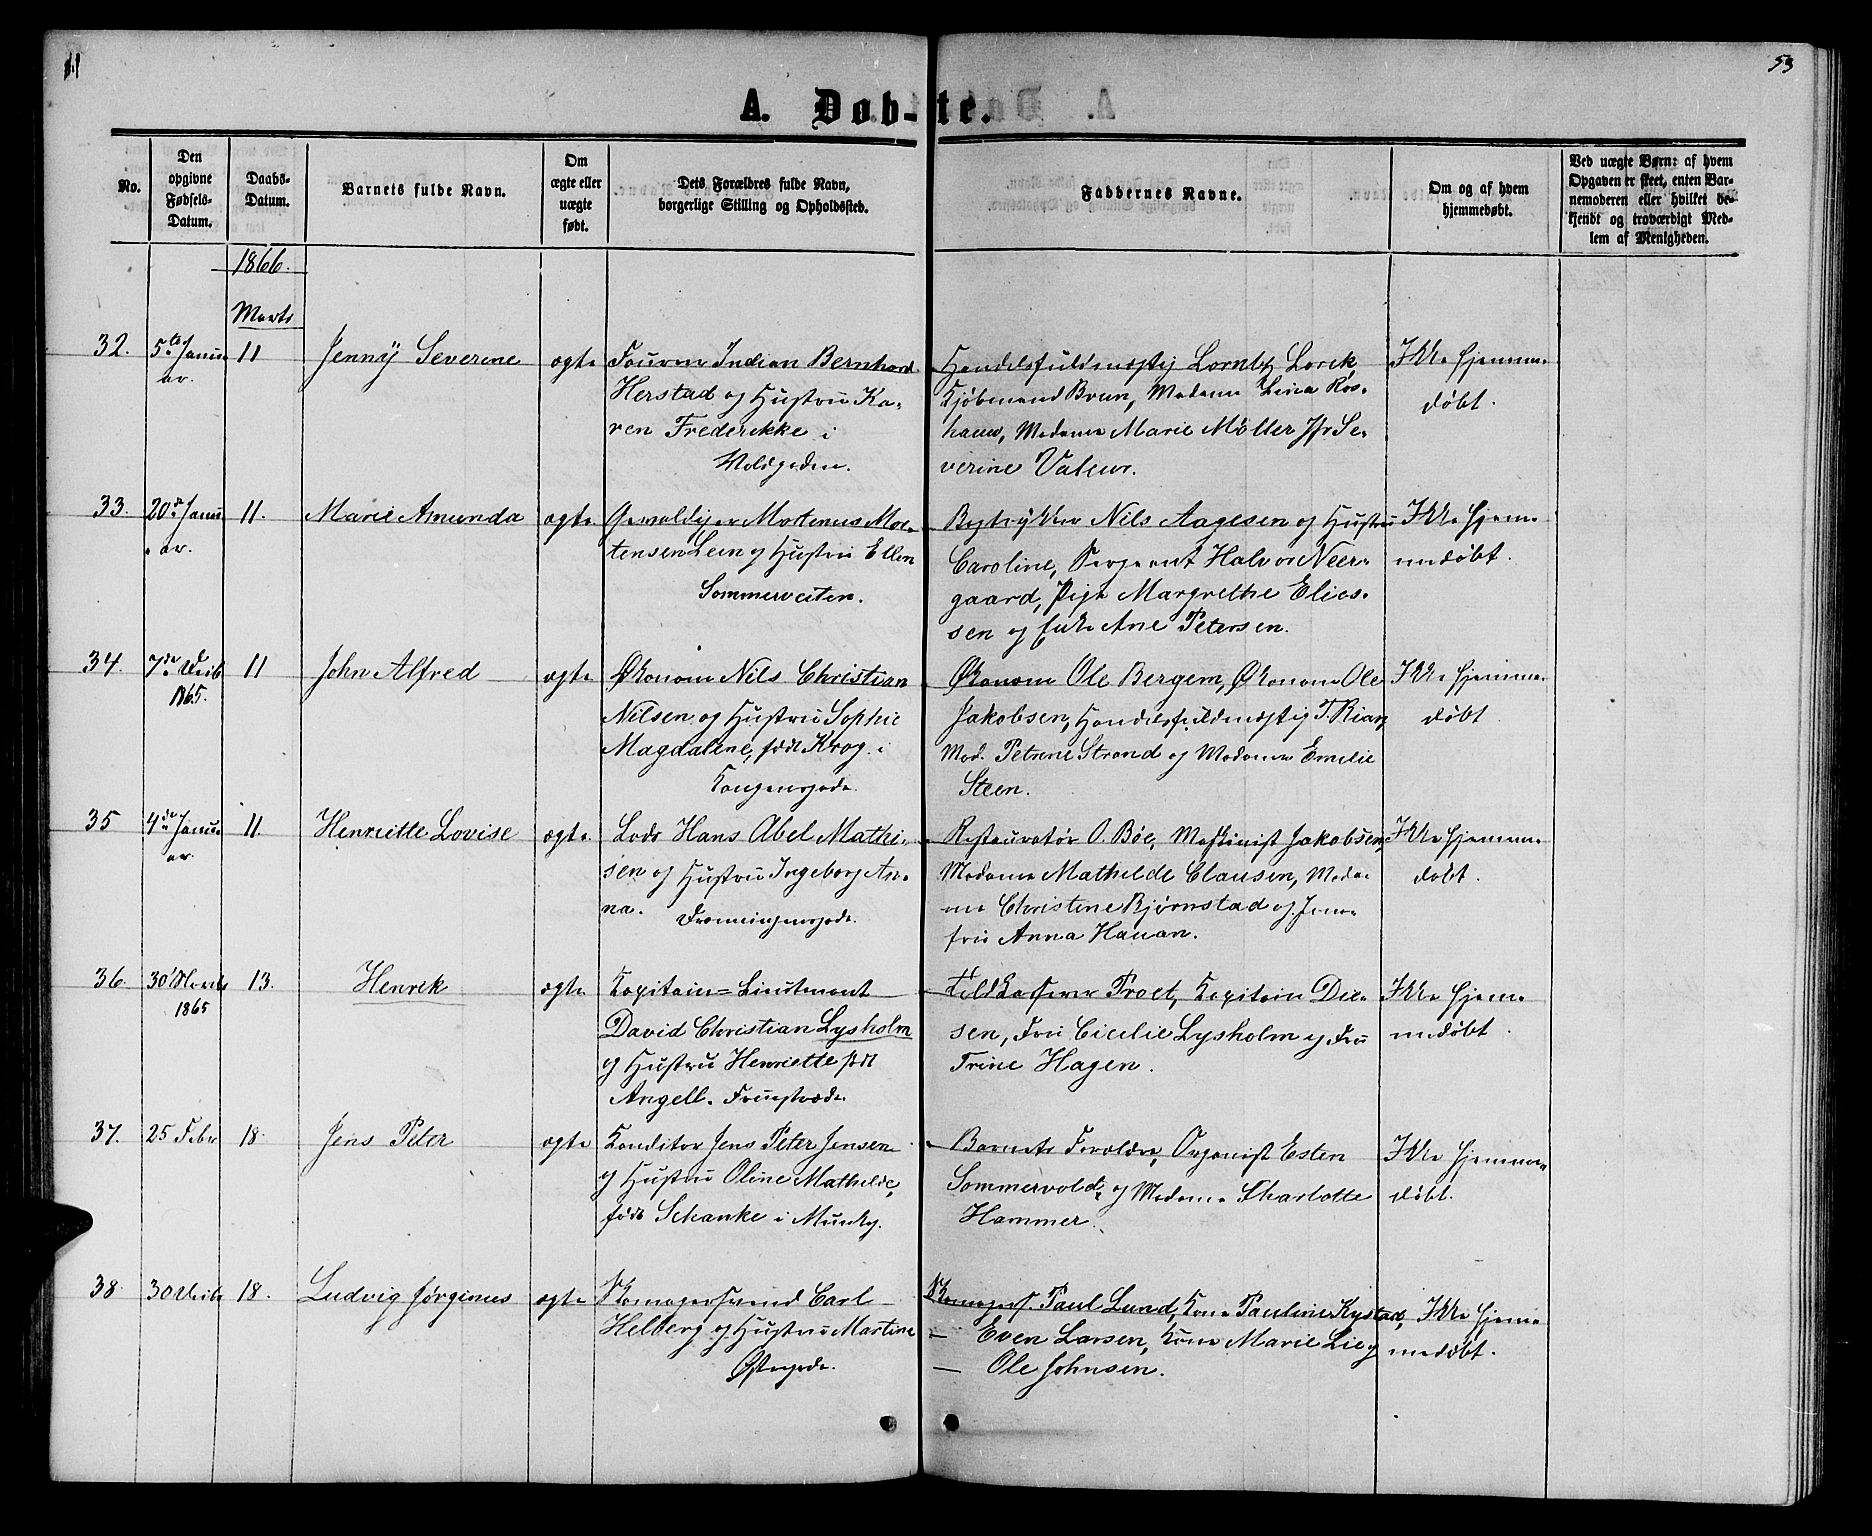 11
53
A. Døb-te.
No.
Den opgivne Fødsels-Datum.
Daabs-Datum.
Barnets fulde Navn.
Om ægte eller uægte født.
Dets Forældres fulde Navn, borgerlige Stilling og Opholdssted.
Faddernes Navne.
Om og af hvem hjemmedøbt.
Ved uægte Børn: af hvem Opgaven er skeet, enten Barnemoderen eller hvilket bekjendt og troværdigt Medlem af Menigheden.
1866.
Marts
32.
5te Janu
ar.
11
Jenny Severine
ægte
Indian Bernhard
Herstad og Hustru Ka-
ren Frederikke i
Voldgaden.
Handelsfuldmægtig Lorck,
Kjøbmand Brun, Madame Lina Ros-
haun, Madame Marie Møller Jfr Se-
verine Valeur.
Ikke hjemme-
døbt.
33.
20de Janu
ar.
11.
Marie Amunda
ægte
Gevaldiger Martenus Mor-
tensen Leen og Hustru Ellen
Sommerveiten.
Bogtrykker Nils Aagesen og Hustru
Caroline, Sergeant Halvor Neer-
gaard, Pige Margrethe Elias-
sen og Enke Ane Petersen.
Ikke hjem-
medøbt.
34.
7de Decb
1865.
11
John Alfred
ægte
Økonom Nils Christian
Nilsen og Hustru Sophie
Magdalene, født Krog i
Kongensgade.
Økonom Ole Bergem, Økonom Ole
Jakobsen, Handelsfuldmægtig T. Rian,
Mad. Petrine Strand og Madame Emilie
Steen.
Ikke hjemme-
døbt.
35
4de Janu
ar.
11.
Henriette Lovise
ægte
Lods Hans Abel Mathi-
sen og Hustru Ingeborg An-
na. Dronningensgade.
Restauratør O. Bøe, Maskinist Jakobsen,
Madame Mathilde Clausen, Mada-
me Christine Bjørnstad og Jom-
fru Anna Hauan.
Ikke hjemme-
døbt.
36.
30
1865
13.
Henrik
ægte
Kapitain=Lieutenant
David Christian Lysholm
og Hustru Henriette født
Angell. Fruestræde.
Toldkasserer Proet, Kapitain Due-
sen, Fru Cicilie Lysholm og Fru
Trine Hagen.
Ikke hjem-
medøbt.
37.
25 Febr
18.
Jens Peter
ægte
Konditor Jens Peter Jensen
og Hustru Oline Mathilde,
født Schanke i Munkg.
Barnets Forældre, Organist Esten
Sommervold, og Madame Charlotte
Hammer.
Ikke hjemme-
døbt.
38.
30 Decbr
18.
Ludvig Jørginus
ægte
Skomagersvend Carl
Helberg og Hustru Martine
Østergade.
Skomagers. Paul Lund, Kone Pauline Kystad,
— Even Larsen, Kone Marie Lie og
— Ole Johnsen.
Ikke hjem-
medøbt.